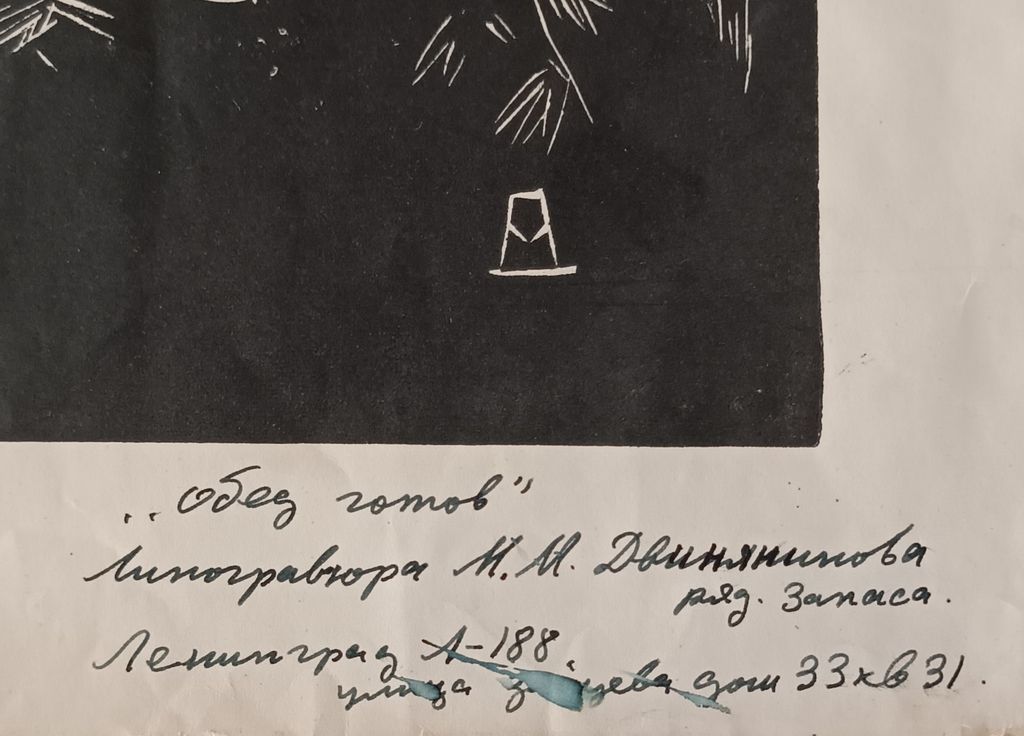 „Обед готов"
Линогравюра М. М. Двинянинова
ряд. запаса.
Ленинград Л-188
улица дом 33 кв 31.